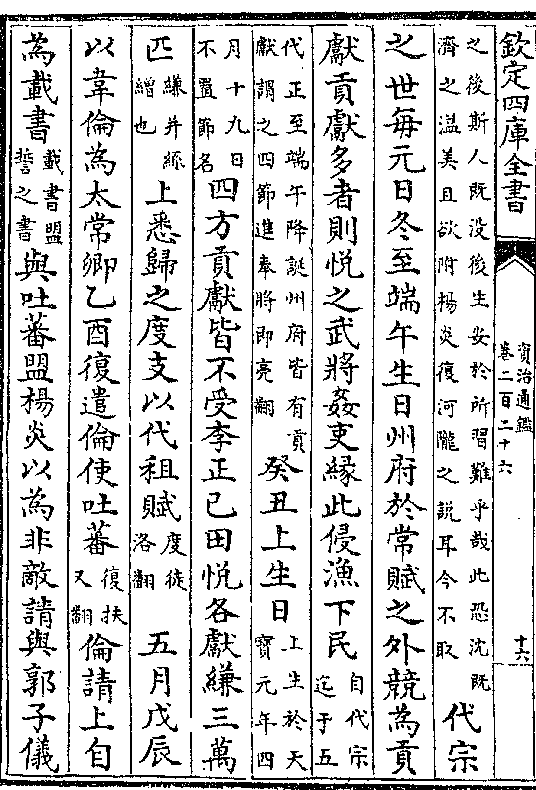 欽定四庫全書
資治通鑑
卷二百二十六
十六
之後斯人既没後生安於所習難乎哉此恐沈既
濟之溫美且欲附楊炎復河隴之説耳今不取
代宗
之世每元日冬至端午生日州府於常賦之外競為貢
獻貢獻多者則悦之武將姦吏緣此侵漁下民
自代宗
迄于五
代正至端午降誕州府皆有貢
獻謂之四節進奉將即亮翻
癸丑上生日
上生於天
寶元年四
月十九日
不置節名
四方貢獻皆不受李正已田悦各獻縑三萬
匹
縑并絲
繒也
上悉歸之度支以代租賦
度徒
洛翻
五月戊辰
以韋倫為太常卿乙酉復遣倫使吐蕃
復扶
又翻
倫請上自
為載書
載書盟
誓之書
與吐蕃盟楊炎以為非敵請與郭子儀